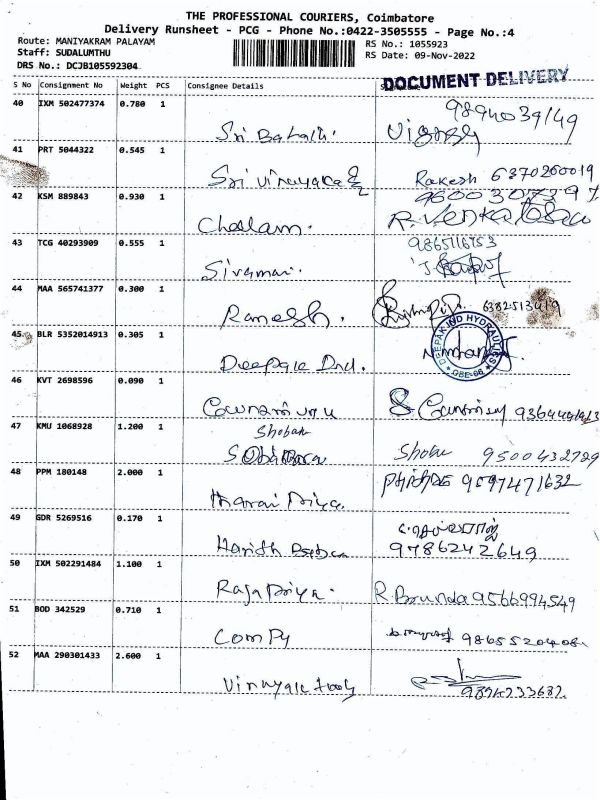 THE PROFESSIONAL COURIERS, Coimbatore
Delivery Runsheet - PCG - Phone No.:0422-3505555 - Page No.:4
Route: MANIYAKRAM PALAYAM
RS No.: 1055923
Staff: SUDALUMTHU
RS Date: 09-Nov-2022
DRS No.: DCJB105592304
DOCUMENT DELIVERY
S No Consignment No Weight PCS Consignee Details
40 IXM 502477374 0.780 1
9894039149
Sri Balaji.
41 PRT 5044322 0.545 1
Sri Vinayaga Rakesh 6370260019
42 KSM 889843 0.930 1
9600307397
Chellam. R. Venkatesan
43 TCG 40293909 0.555 1
9865116753
Sivamani.
44 MAA 565741377 0.300 1
Ramesh. 6382513419
45 BLR 5352014913 0.305 1
DEEPAK IND HYDRAULICS
CBE-06
Deepak Ind.
46 KVT 2698596 0.090 1
47 KMU 1068928 1.200 1
Shoban
Shoba 9500432789
48 PPM 180148 2.000 1
9597471632
49 GDR 5269516 0.170 1
9786242649
50 IXM 502291484 1.100 1
Rajapriya. R. Brunda 9566994549
51 BOD 342529 0.710 1
Compy
52 MAA 290301433 2.600 1
Vinayak tools
9894233687